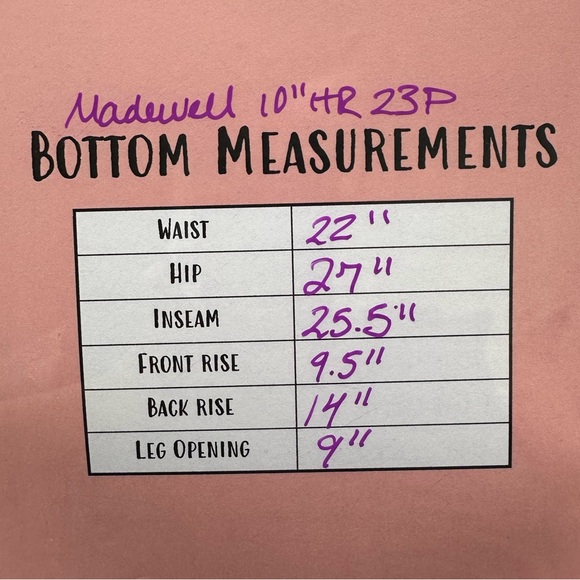 Madewell 10" HR 23P
BOTTOM MEASUREMENTS
WAIST 22"
HIP 27"
INSEAM 25.5"
FRONT RISE 9.5"
BACK RISE 14"
LEG OPENING 9"